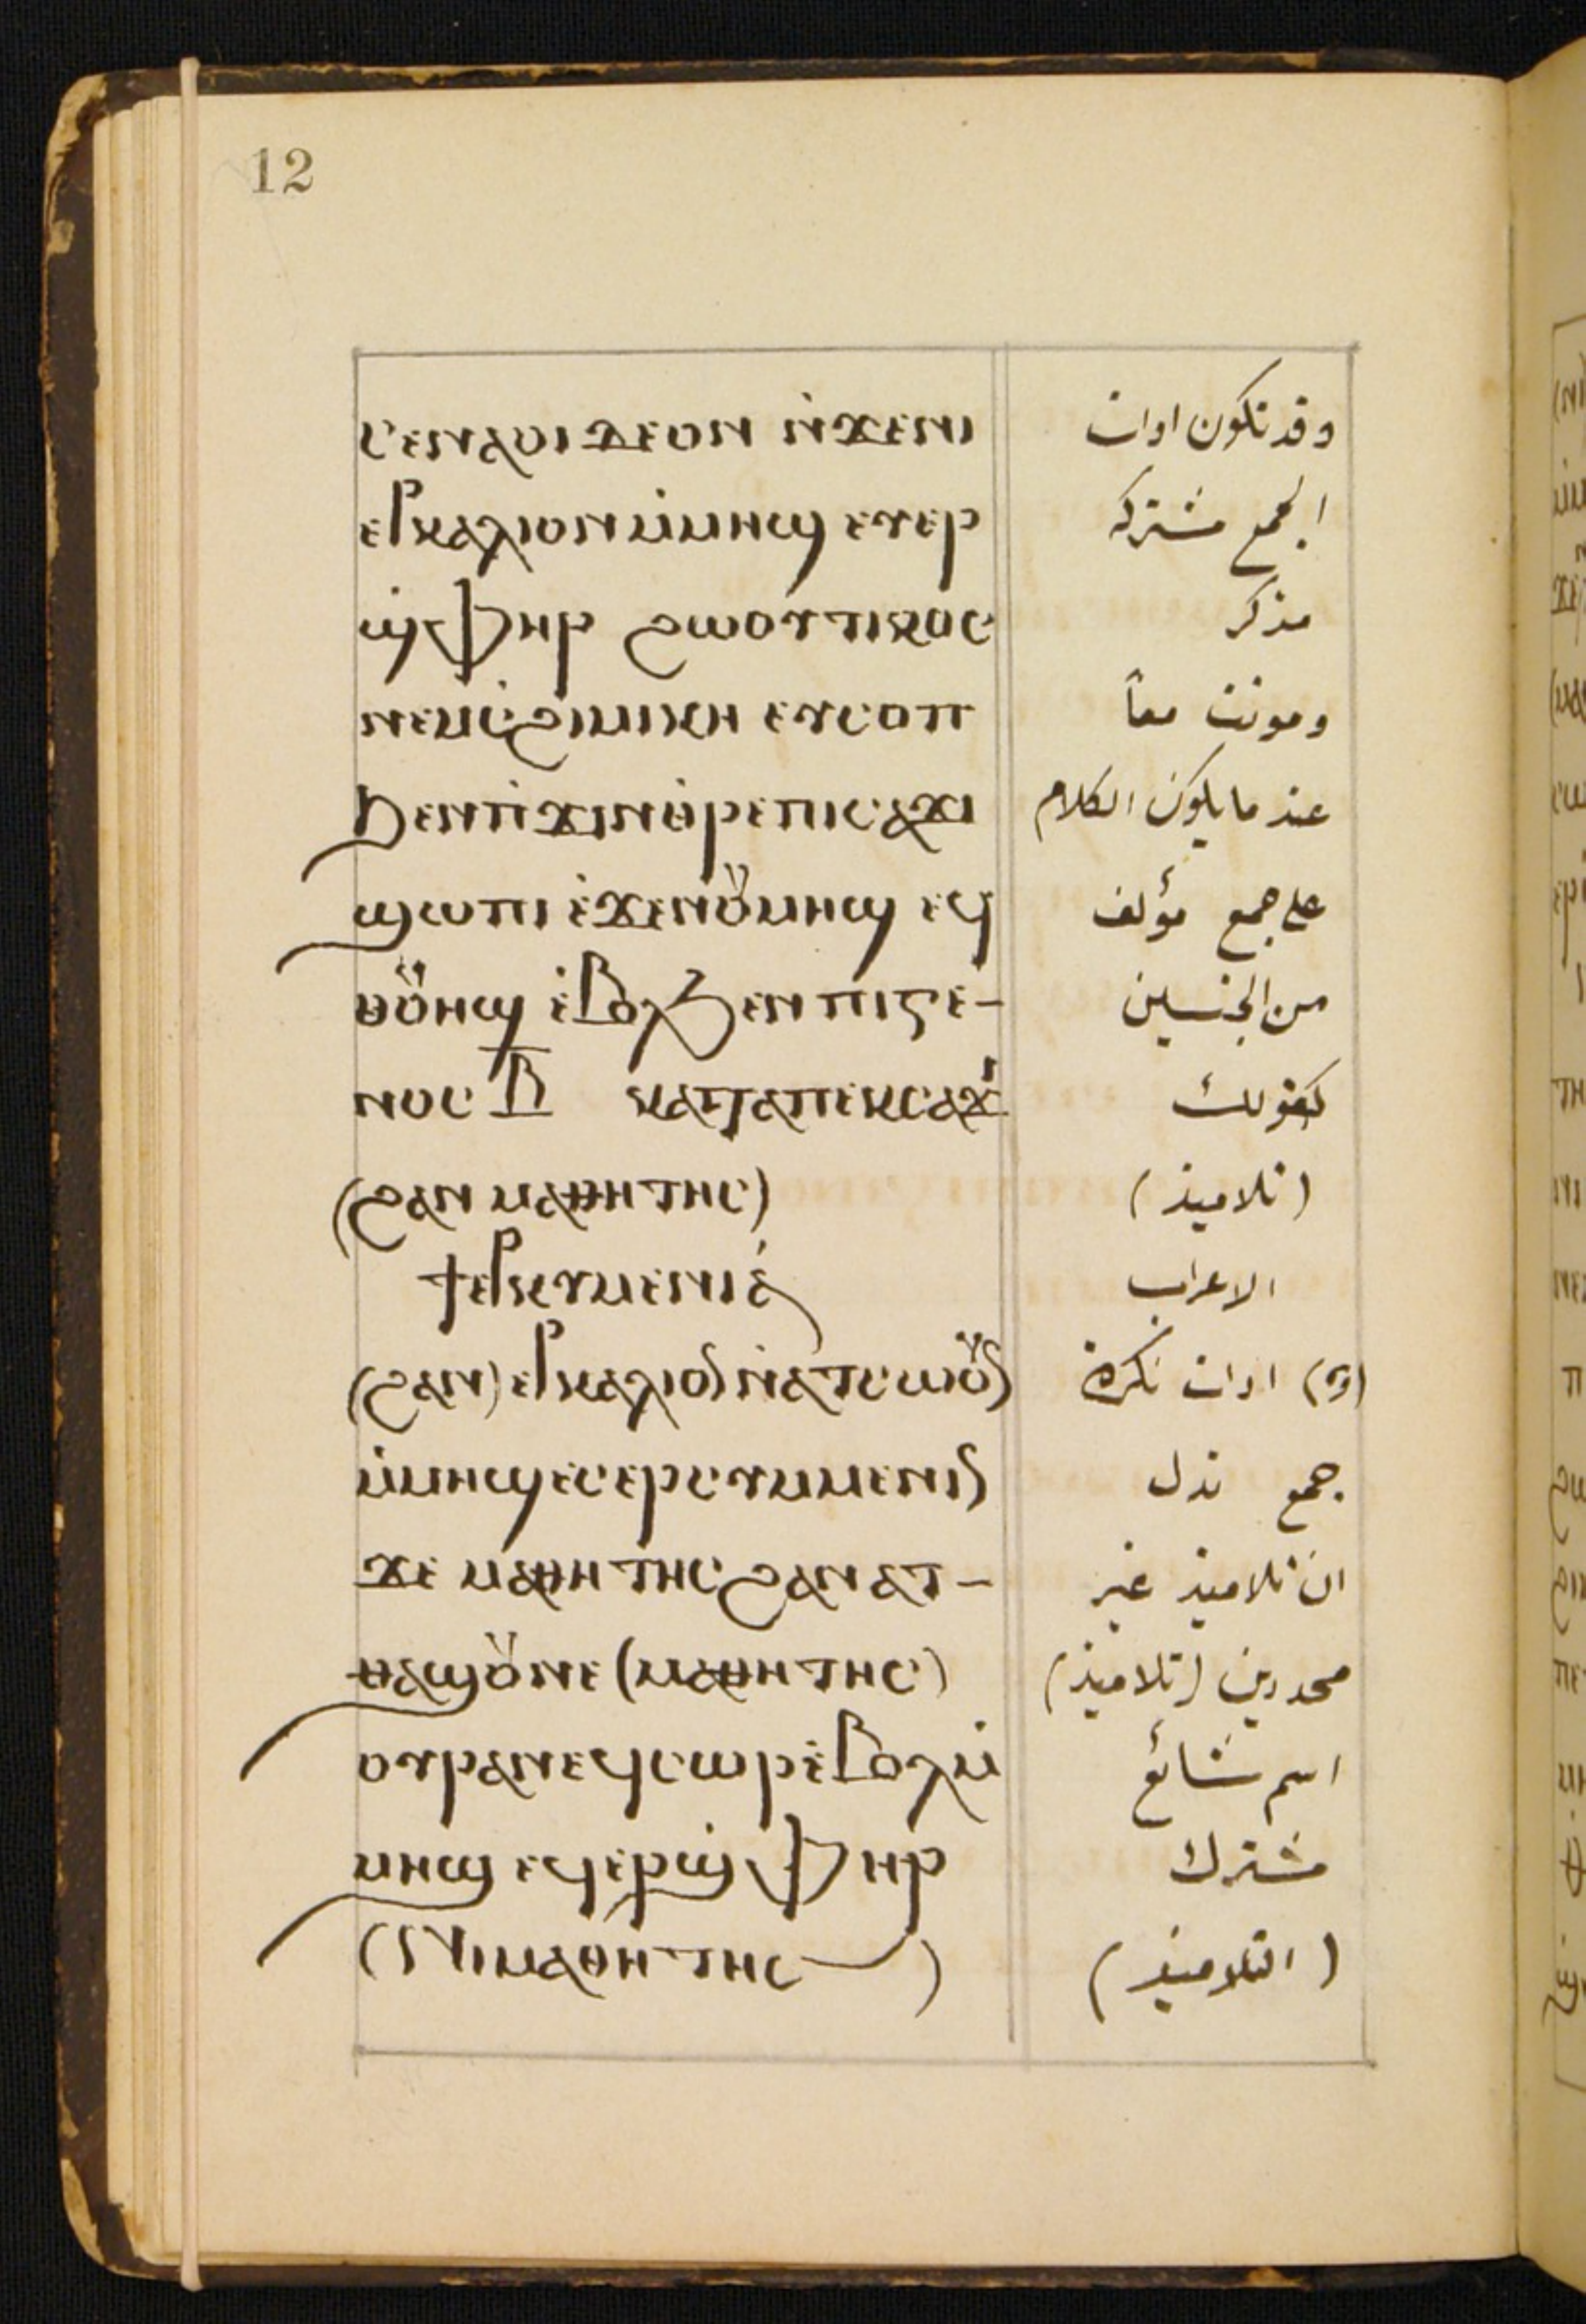 12
ⲥⲉⲛⲁⲟⲓ ϫⲉⲟⲛ ⲛ̀ϫⲉⲛⲓ وقد تكون ادات
ⲉⲣⲅⲁⲗⲓⲟⲛ ⲙ̀ⲙⲏϣ ⲉⲩⲉⲣ الجمع مشتركه
ϣ̀ⲫⲏⲣ ϩⲱⲟⲩⲧⲓⲕⲟⲥ مذكر
ⲛⲉⲙⲥ̀ϩⲓⲙⲓⲕⲏ ⲉⲩⲥⲟⲡ ومونث معاً
ϧⲉⲛⲡ̀ϫⲓⲛⲑ̀ⲣⲉⲡⲓⲥⲁϫⲓ عند ما يكون الكلام
ϣⲱⲡⲓ ⲉ̀ϫⲉⲛⲟⲩⲙⲏϣ ⲉϥ على جمع مؤلف
ⲑⲟⲩⲏϣ ⲉ̀ⲃⲟⲗϧⲉⲛ ⲡⲓⲅⲉ- من الجنسين
ⲛⲟⲥ ⲃ̅ ⲕⲁⲧⲁⲡⲉⲕⲥⲁϫⲓ كقولك
(ϩⲁⲛ ⲙⲁⲑⲏⲧⲏⲥ) (تلاميذ)
الاعراب
(ϩⲁⲛ) ⲛ̀ⲁⲧⲥⲱⲟⲩ (ⲟⲩ) ادات نكرة
ⲙ̀ⲙⲏϣ ⲉⲥⲉⲣⲥⲩⲙⲙⲉⲛⲓⲛ جمع تدل
ϫⲉ ⲙⲁⲑⲏⲧⲏⲥ ϩⲁⲛ ⲁⲧ- ان تلاميذ غير
ⲑⲁϣⲟⲩⲛⲉ (ⲙⲁⲑⲏⲧⲏⲥ) محددين (تلاميذ)
ⲟⲩⲣⲁⲛⲉϥⲥⲱⲣⲉ̀ⲃⲟⲗⲙ̀ اسم شائع
ⲙⲏϣ ⲉϥⲉⲣϣ̀ⲫⲏⲣ مشترك
(ⲛⲓⲙⲁⲑⲏⲧⲏⲥ) (التلاميذ)